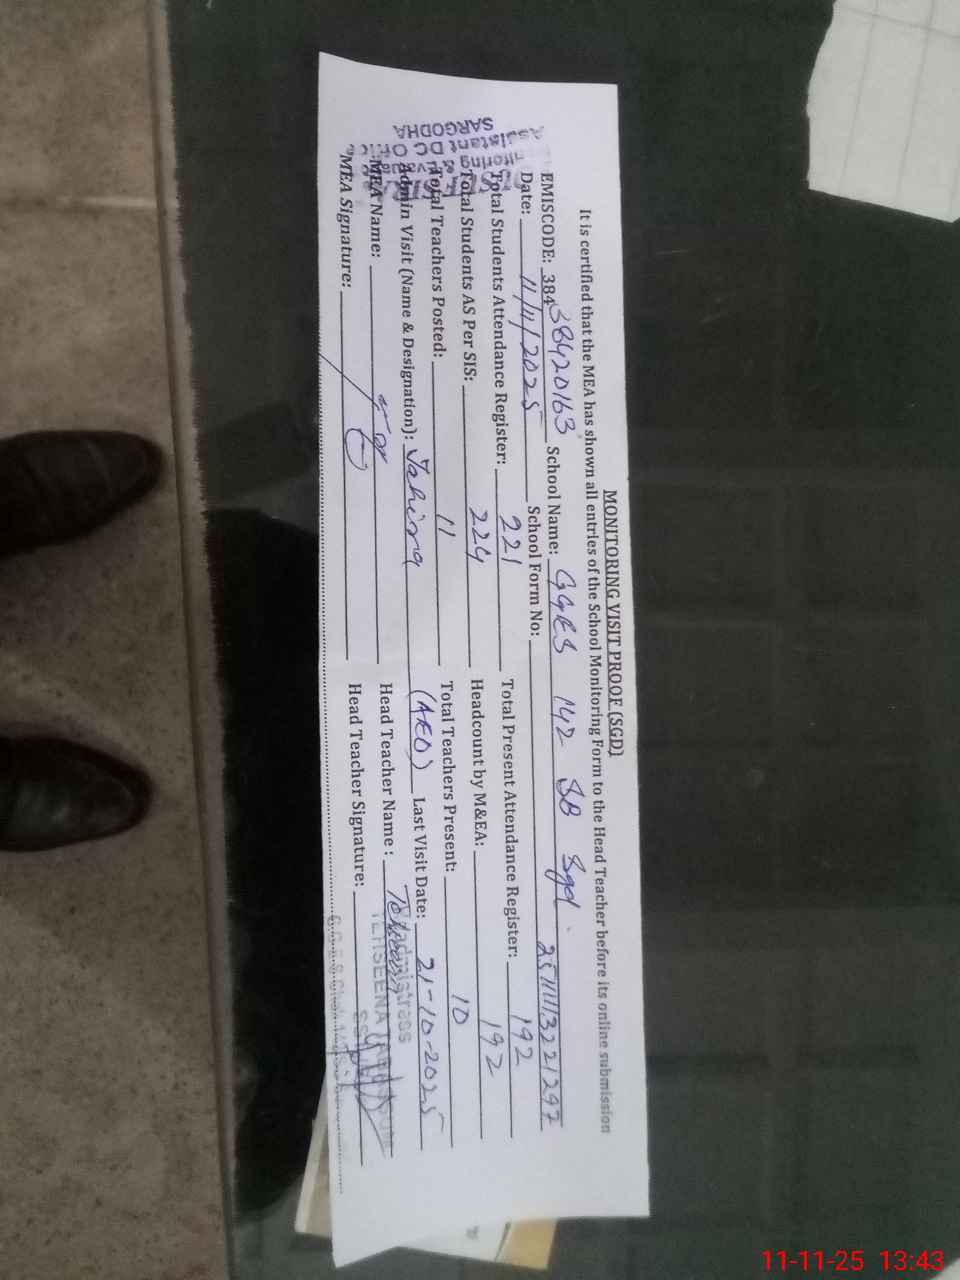 MONITORING VISIT PROOF (SGD)
It is certified that the MEA has shown all entries of the School Monitoring Form to the Head Teacher before its online submission
EMISCODE: 384 38420163 School Name: GGES 142 SB Sgd
Date: 11/11/2025 School Form No:
Total Students Attendance Register: 221 Total Present Attendance Register: 192
Total Students AS Per SIS: 224 Headcount by M&EA: 192
Total Teachers Posted: 11 Total Teachers Present: 10
Admin Visit (Name & Designation): (AEO) Last Visit Date: 21-10-2025
MEA Name: Head Teacher Name:
MEA Signature: Head Teacher Signature:
Assistant DC Office
SARGODHA
Headmistress
TEHSEENA
11-11-25 13:43